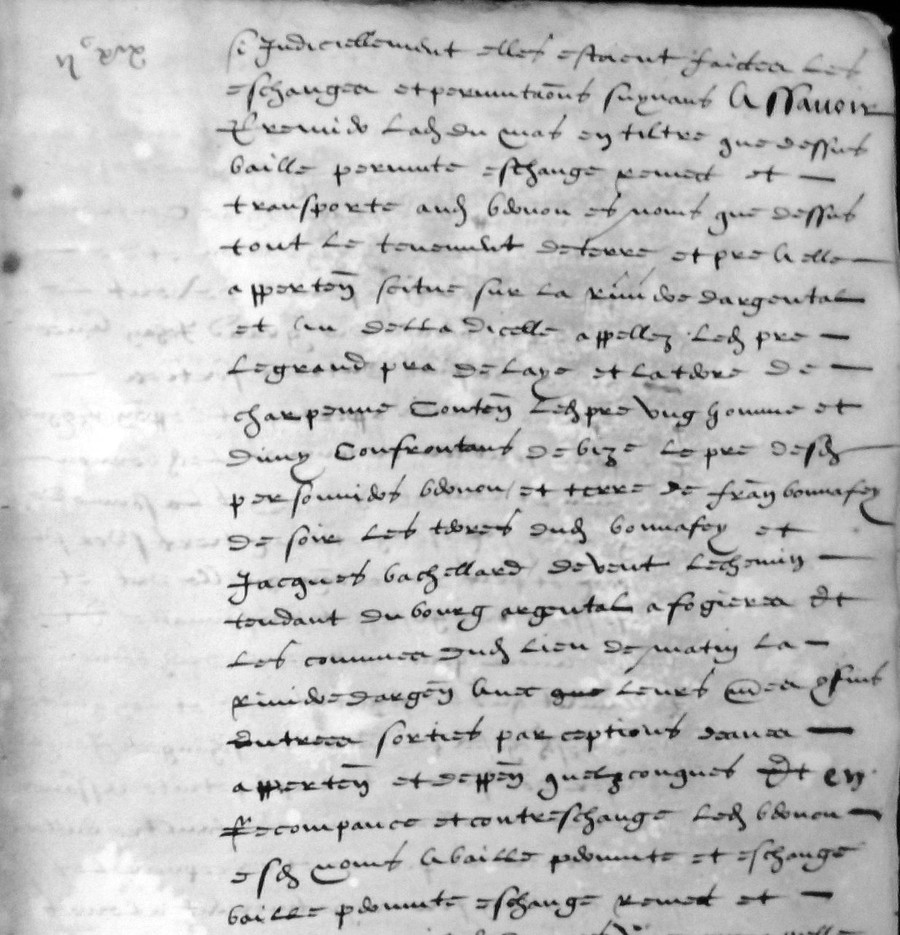 si Judiciellement elles estoient faictes les
eschanges et permutaõns suyvans Assavoir
lad du mas en tiltre que dessus
baille permute eschange remect et
transporte aud es noms que dessus
tout le tenement de terre et pre a elle
apperteñ scitue sur la riviere dargental
et au della dicelle appellez led pre
le grand pra de laye et la terre de
charpenne Conteñ led pre ung homme et
dimy Confrontans de bize le pre desd
personniers et terre de frañ bonnafey
de soir les terres dud bonnafey et
Jacques bachellard de vent le chemin
tendant du bourg argental a fogieres Et
les communes dud lieu de matin la
riviere dargeñ avec leurs
entrees sorties par ceptions
apperteñ et deppeñ quelzconques Et en
Recompance et contreschange led
esd noms a baille permute et eschange
baille permute eschange remect et